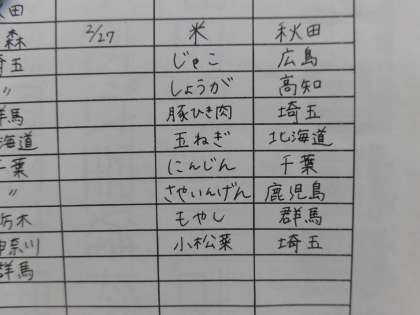 秋田
森 2/27 米 秋田
埼玉 じゃこ 広島
〃 しょうが 高知
群馬 豚ひき肉 埼玉
北海道 玉ねぎ 北海道
千葉 にんじん 千葉
〃 さやいんげん 鹿児島
栃木 もやし 群馬
神奈川 小松菜 埼玉
群馬